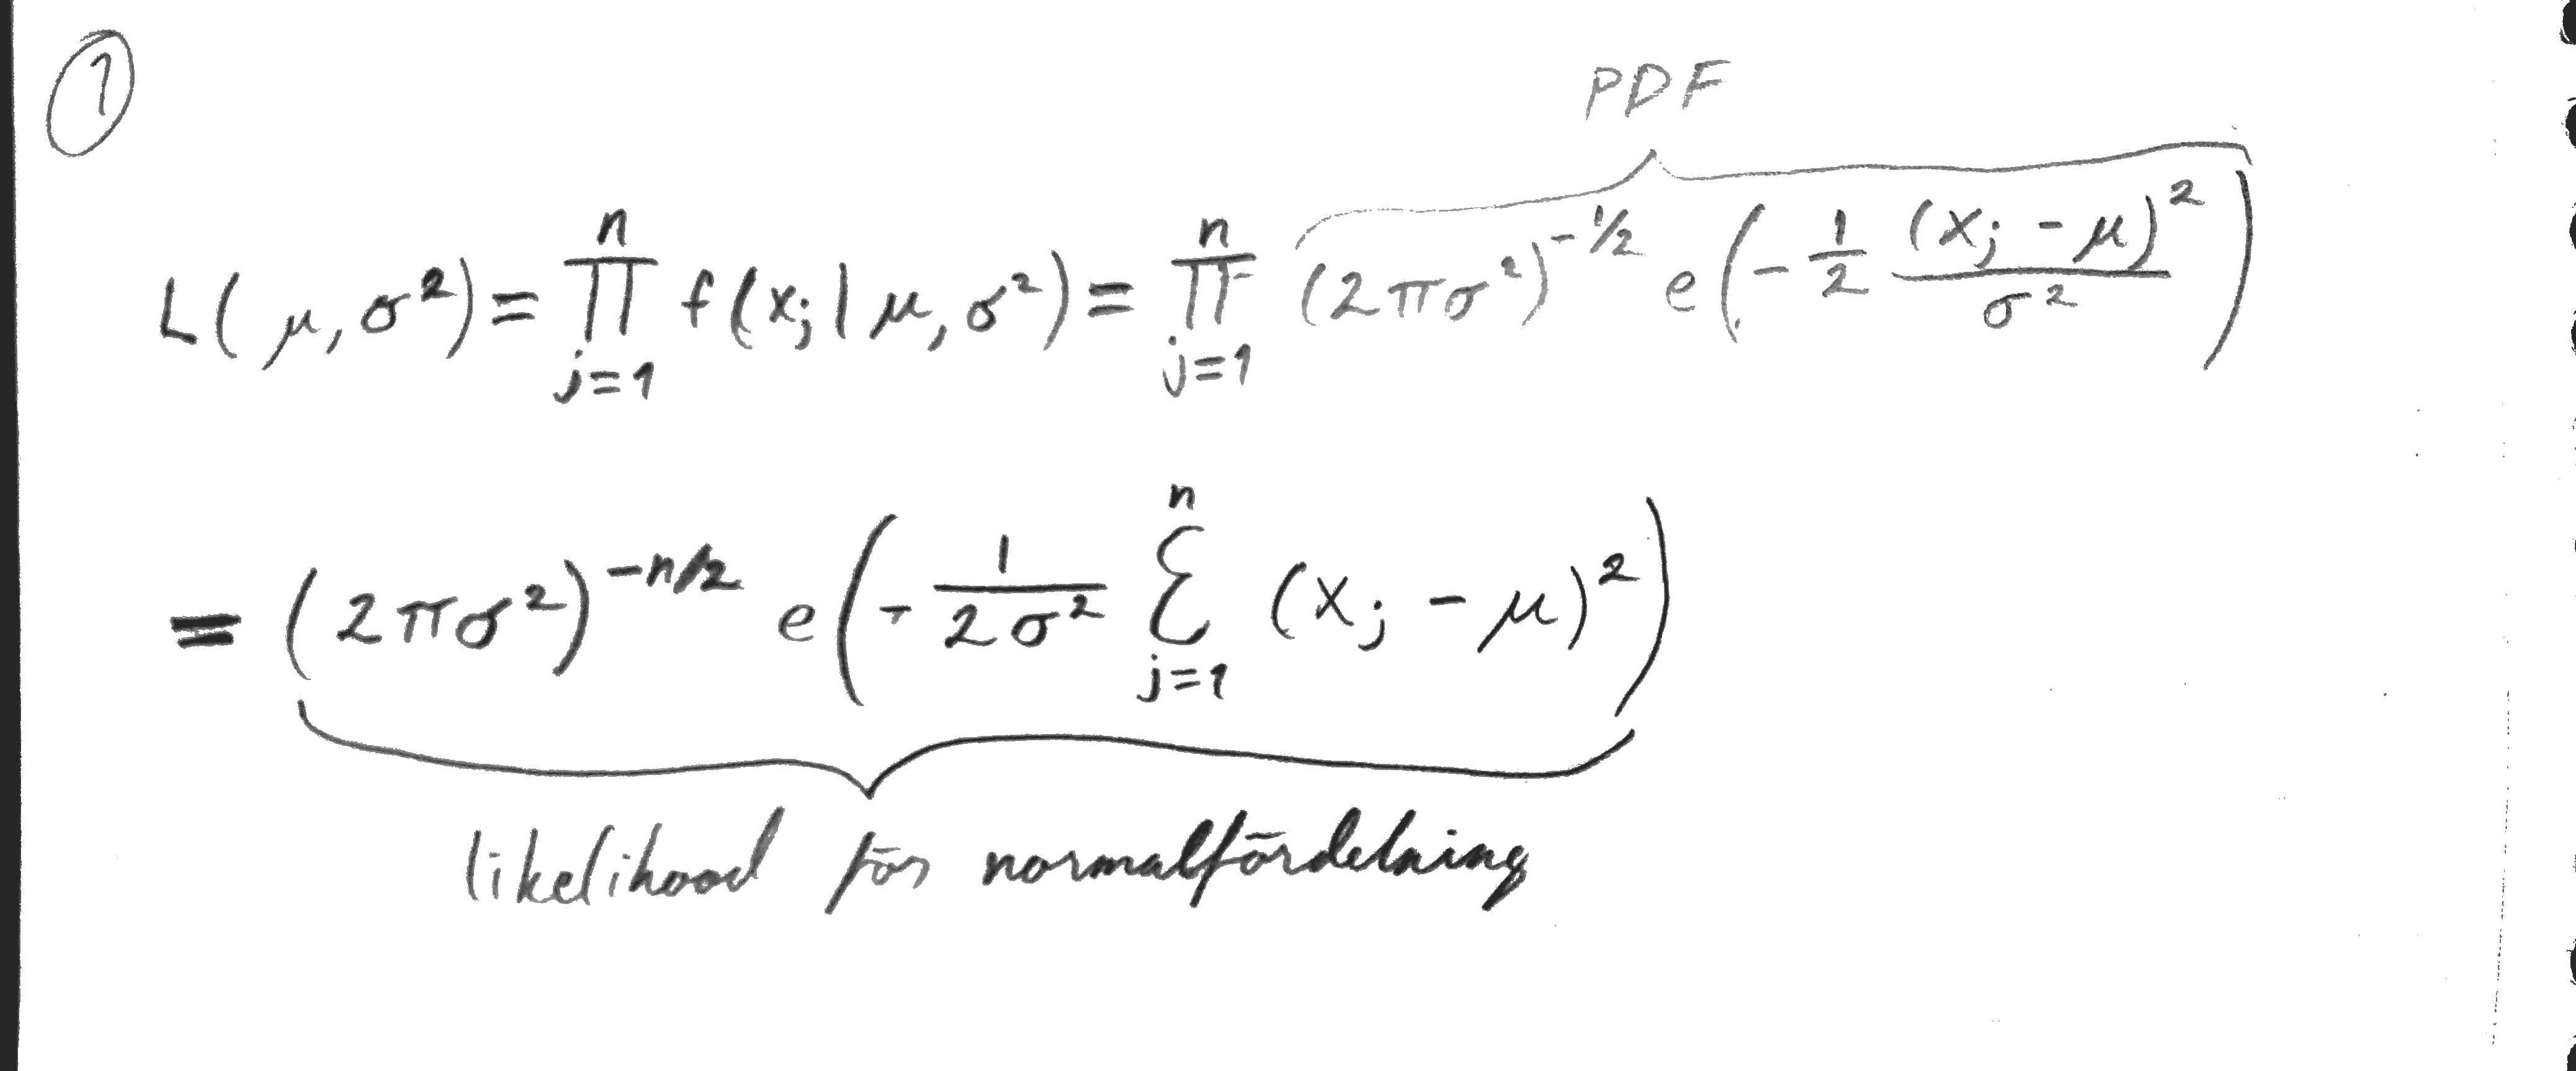 ①
PDF
L(μ, σ²) = ∏ⁿⱼ₌₁ f(xⱼ | μ, σ²) = ∏ⁿⱼ₌₁ (2πσ²)^(-1/2) e(-1/2 (xⱼ - μ)²/σ²)
= (2πσ²)^(-n/2) e(-1/(2σ²) ∑ⁿⱼ₌₁ (xⱼ - μ)²)
likelihood för normalfördelning